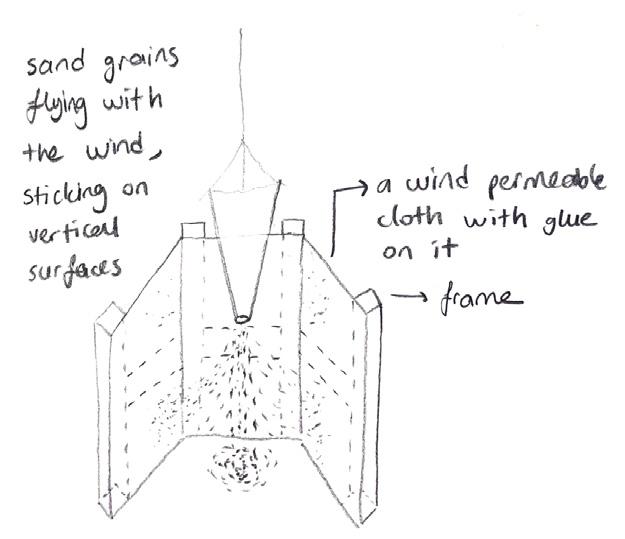 sand grains
flying with
the wind,
sticking on
vertical
surfaces
a wind permeable
cloth with glue
on it
frame